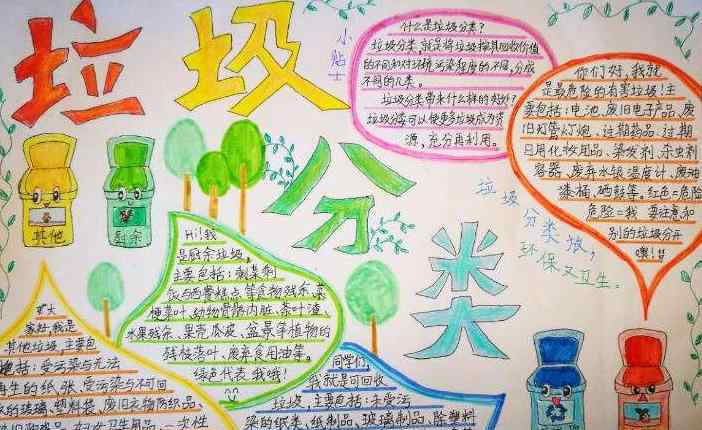 垃圾
分
类
小贴士
什么是垃圾分类?
垃圾分类,就是将垃圾按其回收价值
的不同和对环境污染程度的不同,分成
不同的几类。
垃圾分类带来什么样的好处?
垃圾分类可以使更多垃圾成为资
源,充分再利用。
你们好,我就
是最危险的有害垃圾!主
要包括:电池、废旧电子产品、废
旧灯管灯泡、过期药品、过期
日用化妆用品、染发剂、杀虫剂
容器、废弃水银温度计、废油
漆桶、硒鼓等。红色=危险
危险=我 要注意和
别的垃圾分开
噢!!
垃圾
分类娘,
环保又卫生。
其他
厨余
Hi!我
是厨余垃圾,
主要包括:剩菜剩
饭与西餐糕点等食物残余、菜
梗菜叶、动物骨骼内脏、茶叶渣、
水果残余、果壳瓜皮、盆景等植物的
残枝落叶、废弃食用油等。
绿色代表我哦!
家好,我是
其他垃圾,主要包
括:受污染与无法
再生的纸张、受污染与不可回
的玻璃、塑料袋、废旧衣物纺织品、
妇女卫生用品、一次性
同学们,
我就是可回收
垃圾,主要包括:未受污
染的纸类、纸制品、玻璃制品、除塑料